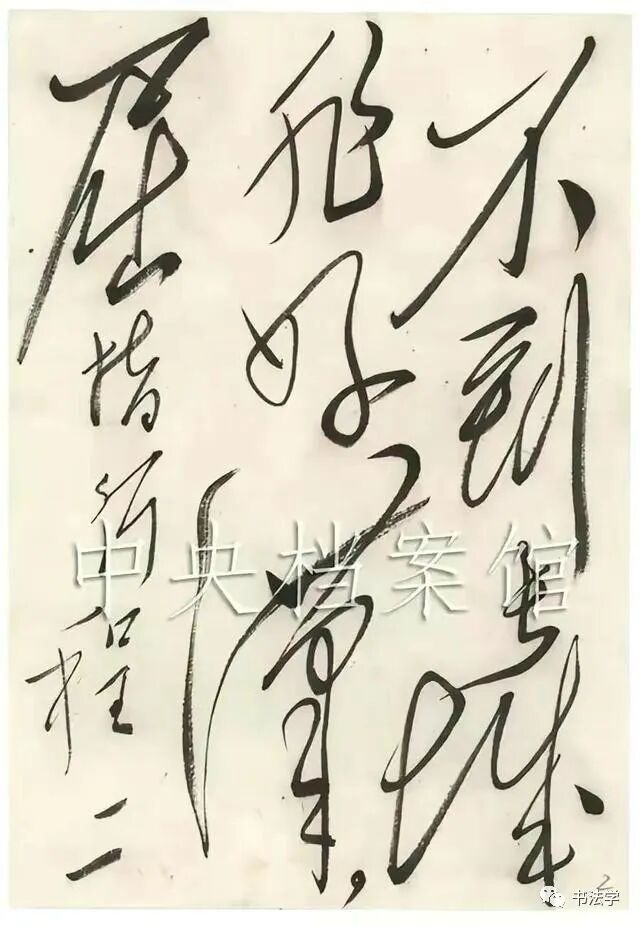 不到长城
非好汉，
屈指行程二
中央档案馆
二
书法学